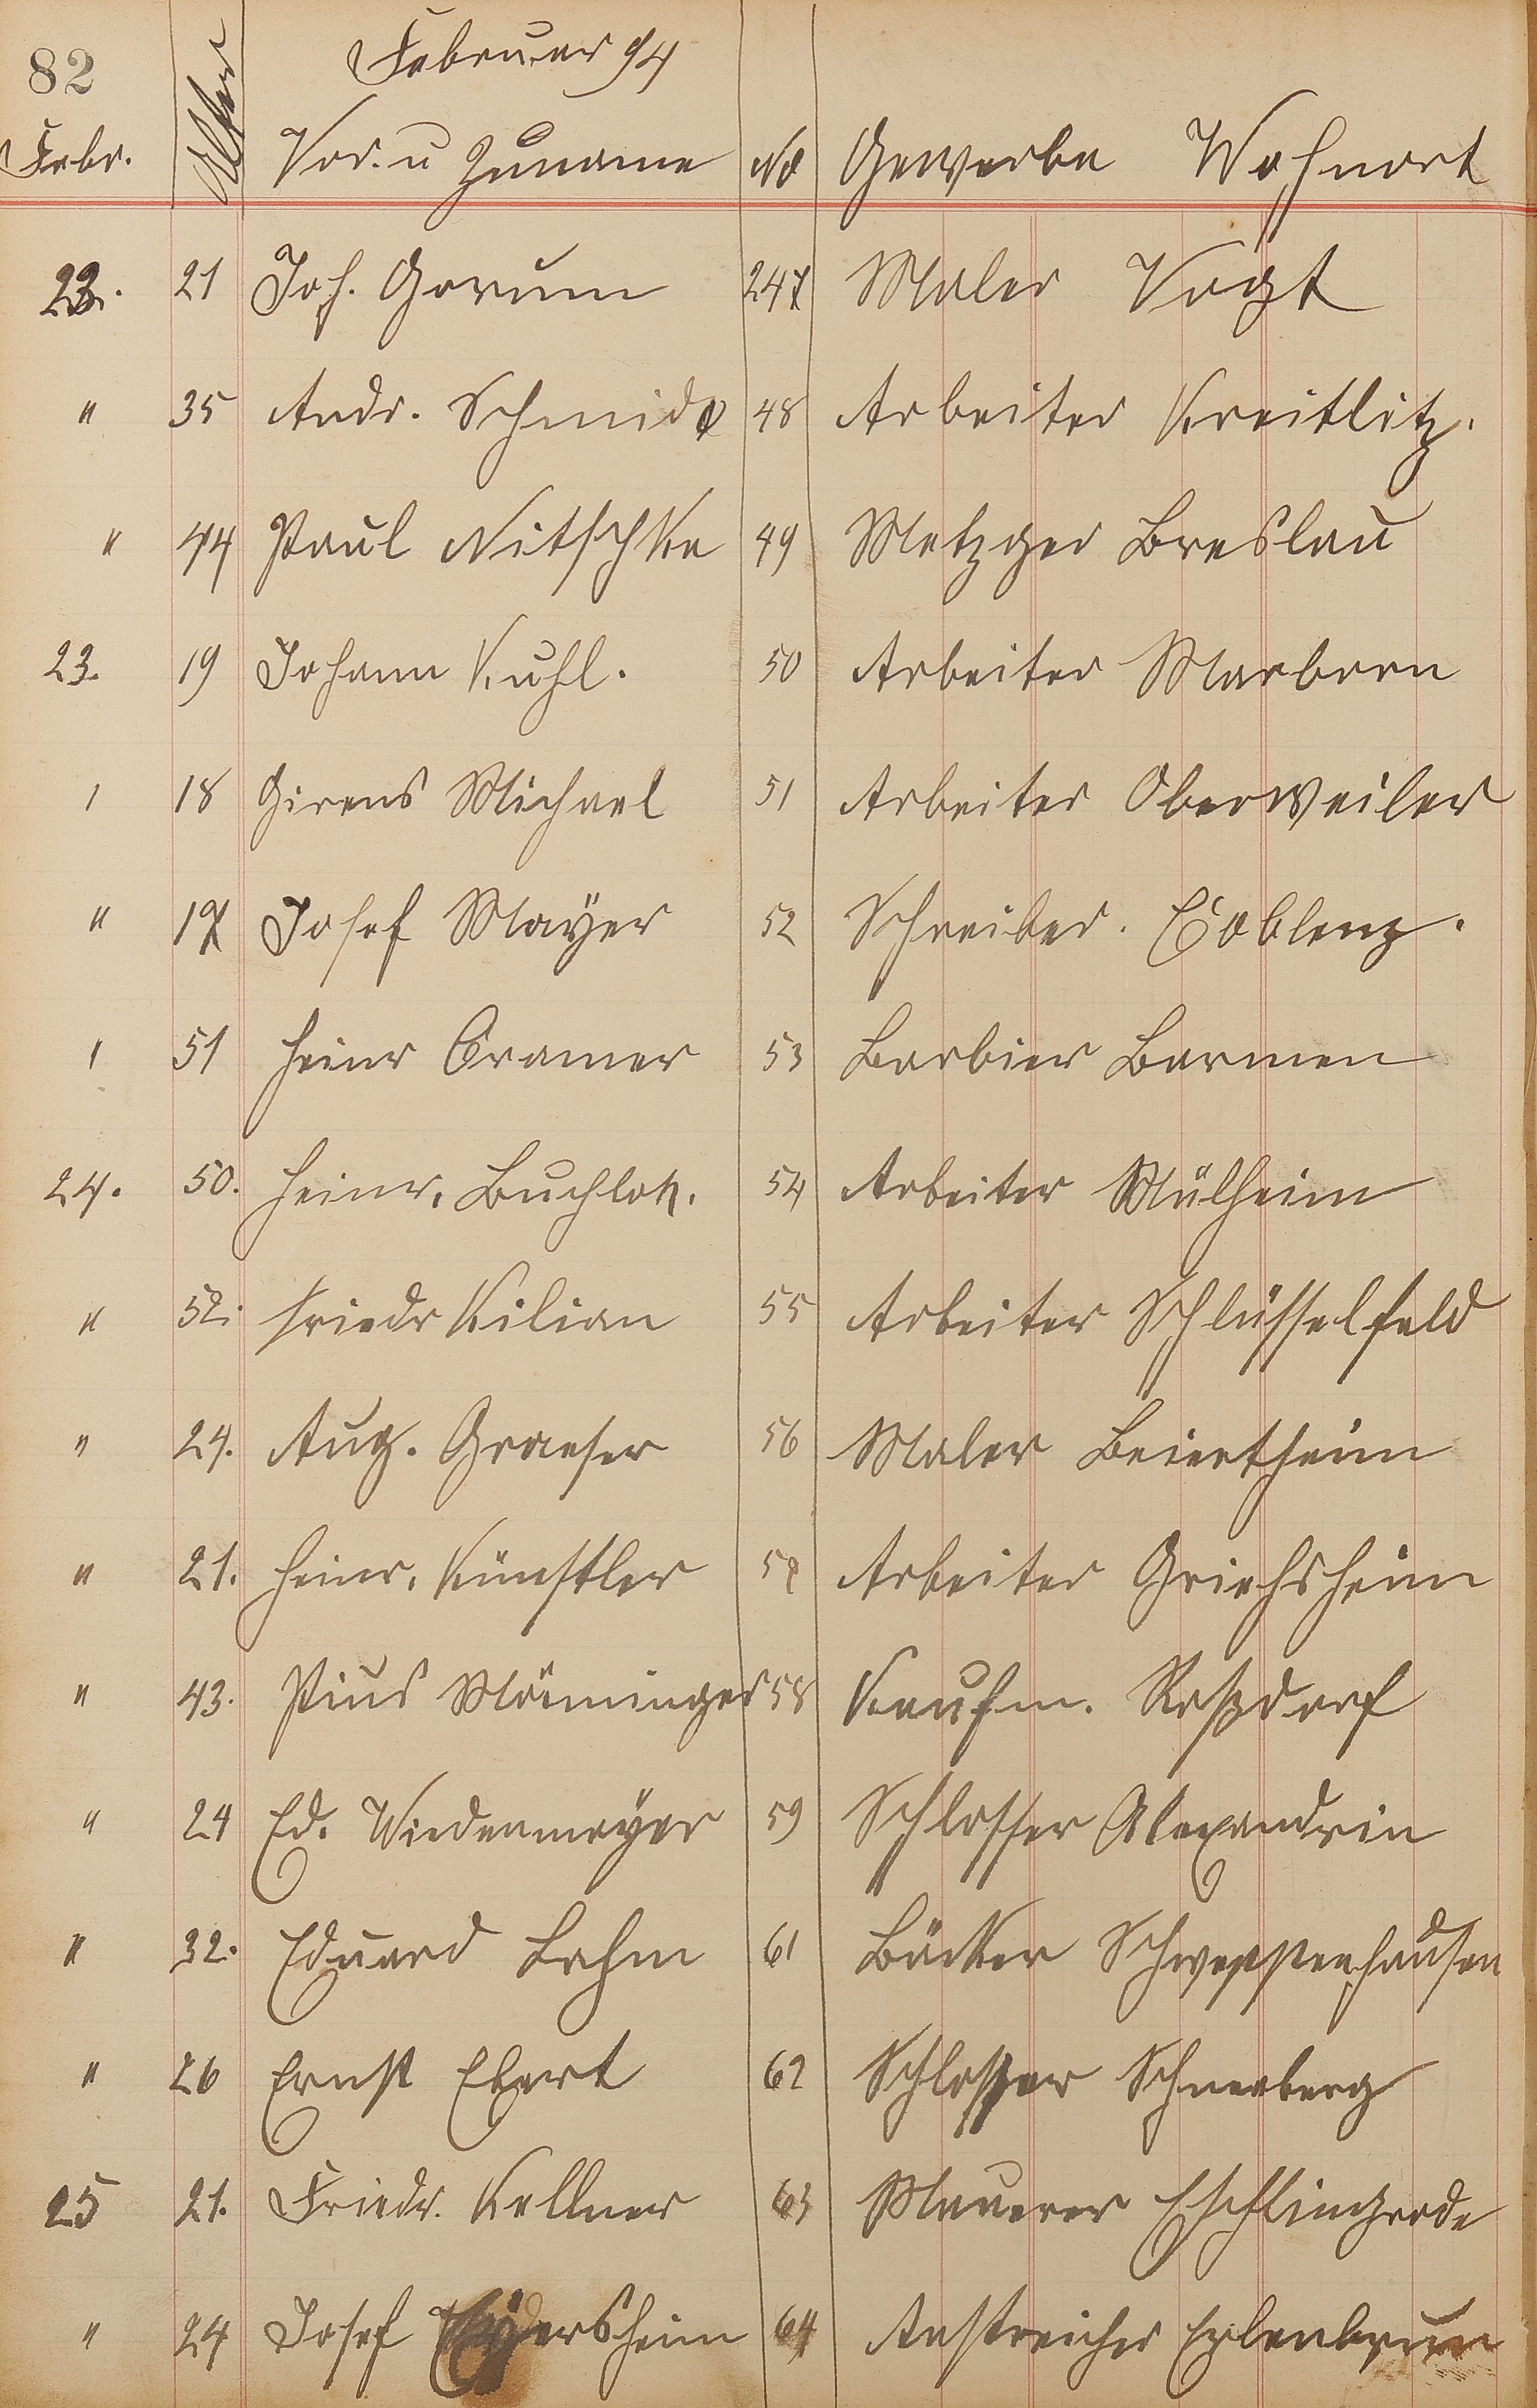 82 Februar 94
Febr. Alter Vor. u Zuname No Gewerbe Wohnort
22. 21 Joh. Gorum 247 Maler Vogt
" 35 Andr. Schmidt 48 Arbeiter Kreitlitz.
" 44 Paul Nitschke 49 Metzger Breslau
23. 19 Johann Kuhl. 50 Arbeiter Marborn
" 18 Girens Michael 51 Arbeiter Oberweiler
" 17 Josef Mayer 52 Schreiber. Coblenz.
" 51 Heinr Cramer 53 Barbier Barmen
24. 50. Heinr. Buchloh. 54 Arbeiter Mülheim
" 52. Friedr Kilian 55 Arbeiter Schlüsselfeld
" 24. Aug. Graeser 56 Maler Beiertheim
" 21. Heinr. Künstler 57 Arbeiter Griehsheim
" 43. Pius Mörminger 58 Kaufm. Roßdorf
" 24 Ed. Wiedenmayer 59 Schlosser Alexandrin
" 32. Eduard Lahm 61 Bäcker Schweppenhausen
" 26 Ernst Ebert 62 Schlosser Schneeberg
25 21. Friedr. Kellner 63 Maurer
" 24 Josef 64 Anstreicher Erlenbrunn